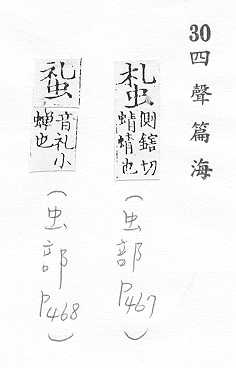 30
四聲篇海
側鎋切
蜻蜻也
(虫部P467)
音礼小
蟬也
(虫部P468)